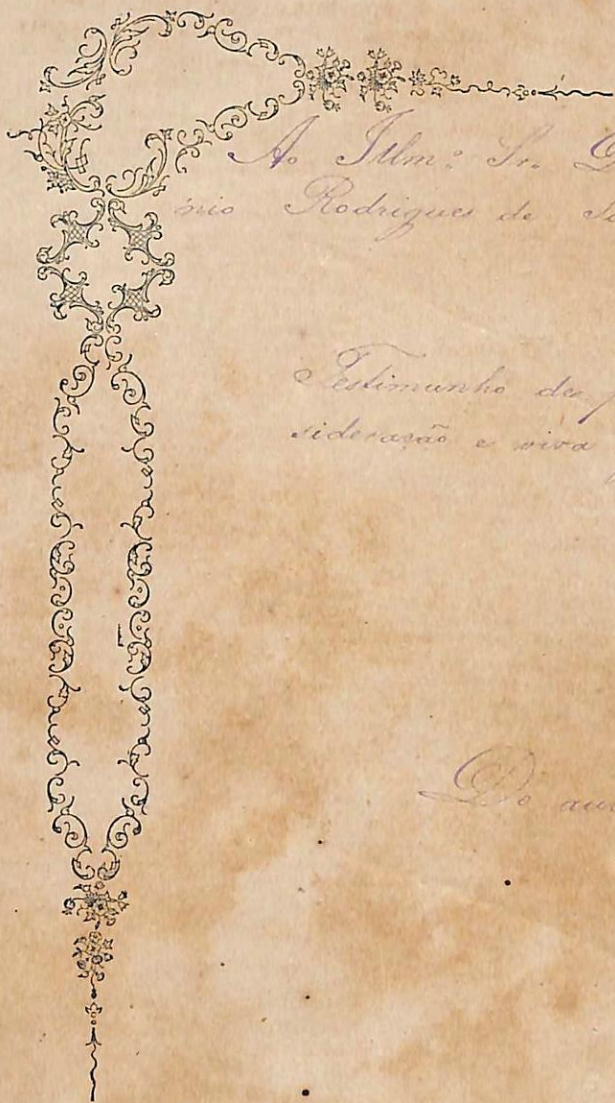 Ao Illm.º Sr. D
nio Rodrigues de
Testimunho de
sideração e viva
Do au